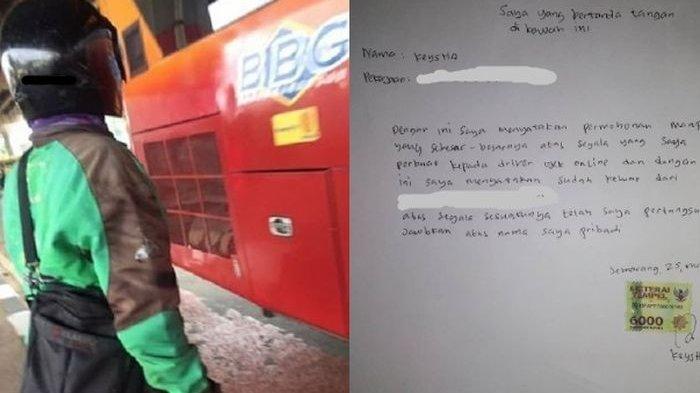 BBG
Saya yang bertanda tangan
di bawah ini
Nama : Keysha
Pekerjaan :
Dengan ini saya menyatakan permohonan
yang sebesar-besarnya atas segala yang saya
perbuat kepada driver ojek online dan dengan
ini saya menyatakan sudah keluar dari
atas segala sesuatunya telah saya
jawabkan atas nama saya pribadi
Semarang, 25,
METERAI
TEMPEL
6000